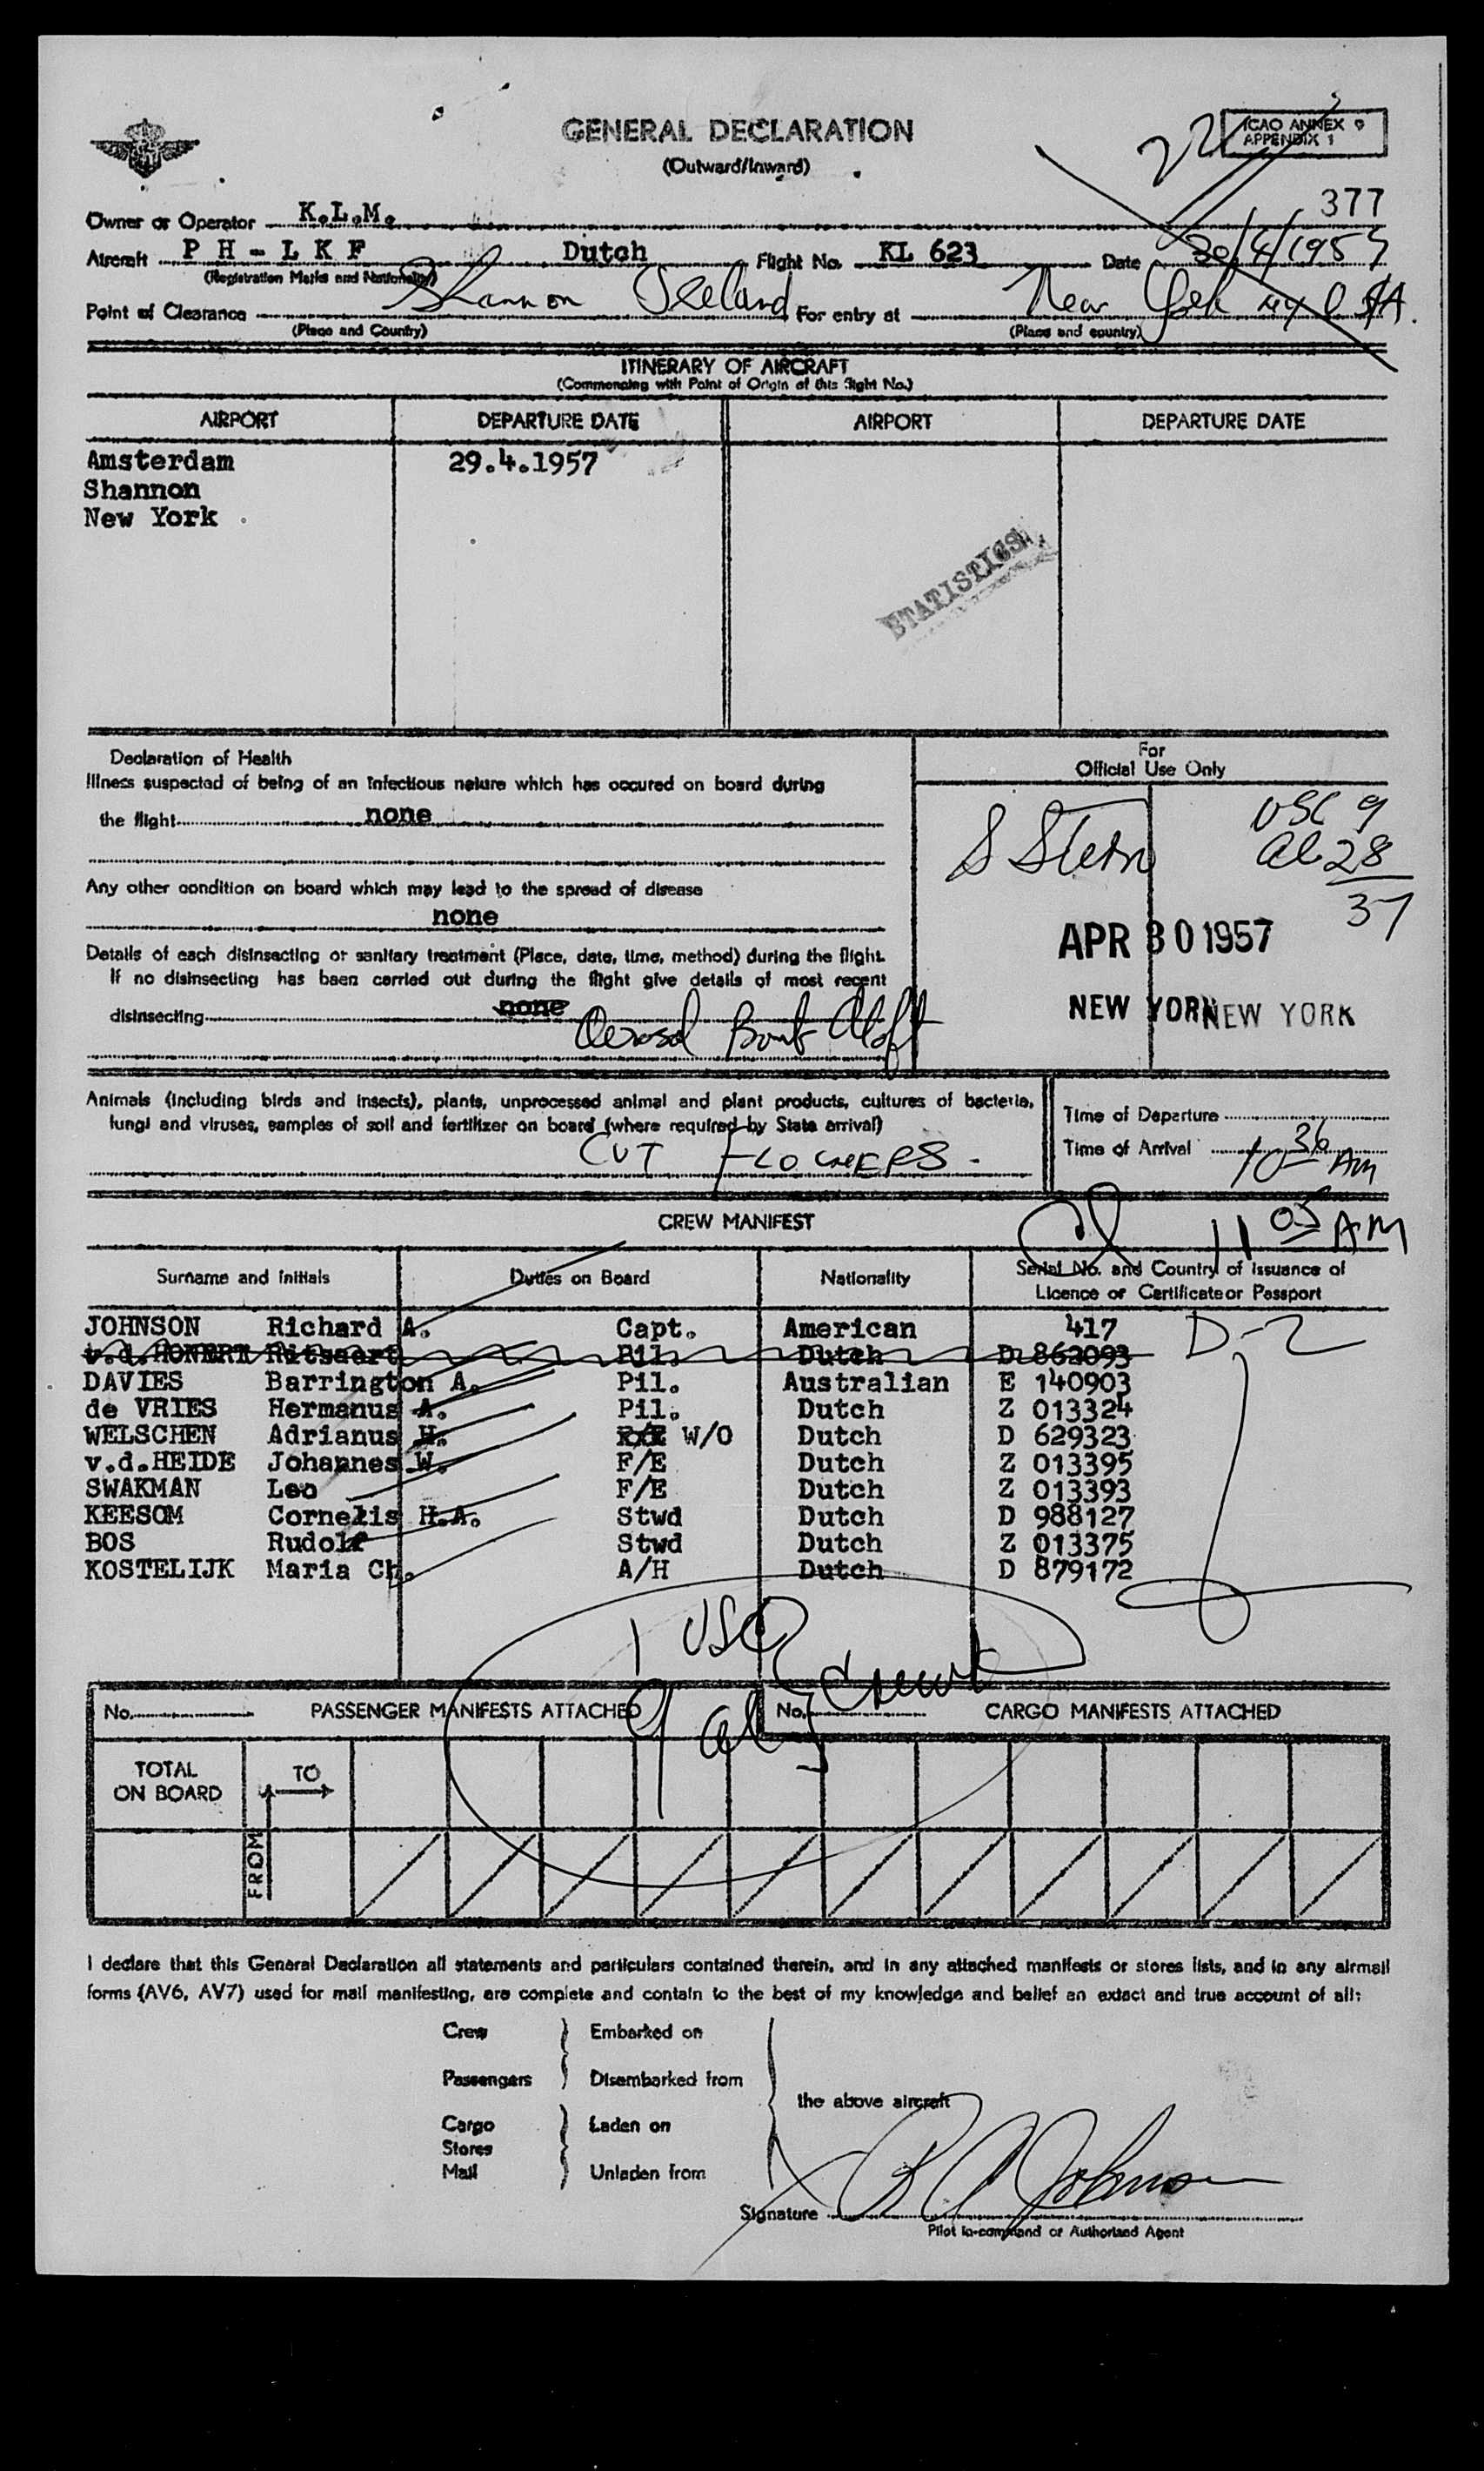 GENERAL DECLARATION
(Outward/Inward)
ICAO ANNEX 9
APPENDIX 1
377
Owner or Operator K.L.M.
Aircraft P H - L K F Dutch Flight No. KL 623 Date 30/4/1957
(Registration Marks and Nationality)
Point of Clearance Shannon Ireland For entry at New York NY USA.
(Place and Country) (Place and country)
ITINERARY OF AIRCRAFT
(Commencing with Point of Origin of this flight No.)
AIRPORT DEPARTURE DATE AIRPORT DEPARTURE DATE
Amsterdam 29.4.1957
Shannon
New York
STATISTICS
Declaration of Health
Illness suspected of being of an infectious nature which has occured on board during
the flight none
Any other condition on board which may lead to the spread of disease
none
Details of each disinsecting or sanitary treatment (Place, date, time, method) during the flight.
If no disinsecting has been carried out during the flight give details of most recent
disinsecting none
Aerosol Bomb Aloft
For
Official Use Only
S Stern
USC 9
al 28
37
APR 30 1957
NEW YORK NEW YORK
Animals (including birds and insects), plants, unprocessed animal and plant products, cultures of bacteria,
fungi and viruses, samples of soil and fertilizer on board (where required by State arrival)
CUT FLOWERS -
Time of Departure
Time of Arrival 10 36 AM
11 05 AM
CREW MANIFEST
Surname and initials Duties on Board Nationality Serial No. and Country of Issuance of
Licence or Certificate or Passport
JOHNSON Richard A. Capt. American 417 D-2
v.d.HONERT Ritsaert Pil. Dutch D 862093
DAVIES Barrington A. Pil. Australian E 140903
de VRIES Hermanus A. Pil. Dutch Z 013324
WELSCHEN Adrianus H. W/O Dutch D 629323
v.d.HEIDE Johannes W. F/E Dutch Z 013395
SWAKMAN Leo F/E Dutch Z 013393
KEESOM Cornelis H.A. Stwd Dutch D 988127
BOS Rudolf Stwd Dutch Z 013375
KOSTELIJK Maria Ch. A/H Dutch D 879172
1 USC
9 al
Crew
No. PASSENGER MANIFESTS ATTACHED No. CARGO MANIFESTS ATTACHED
TOTAL
ON BOARD
TO
FROM
I declare that this General Declaration all statements and particulars contained therein, and in any attached manifests or stores lists, and in any airmail
forms (AV6, AV7) used for mail manifesting, are complete and contain to the best of my knowledge and belief an extact and true account of all:
Crew Embarked on
Passengers Disembarked from
the above aircraft
Cargo Laden on
Stores
Mail Unladen from
Signature R A Johnson
Pilot in-command or Authorised Agent